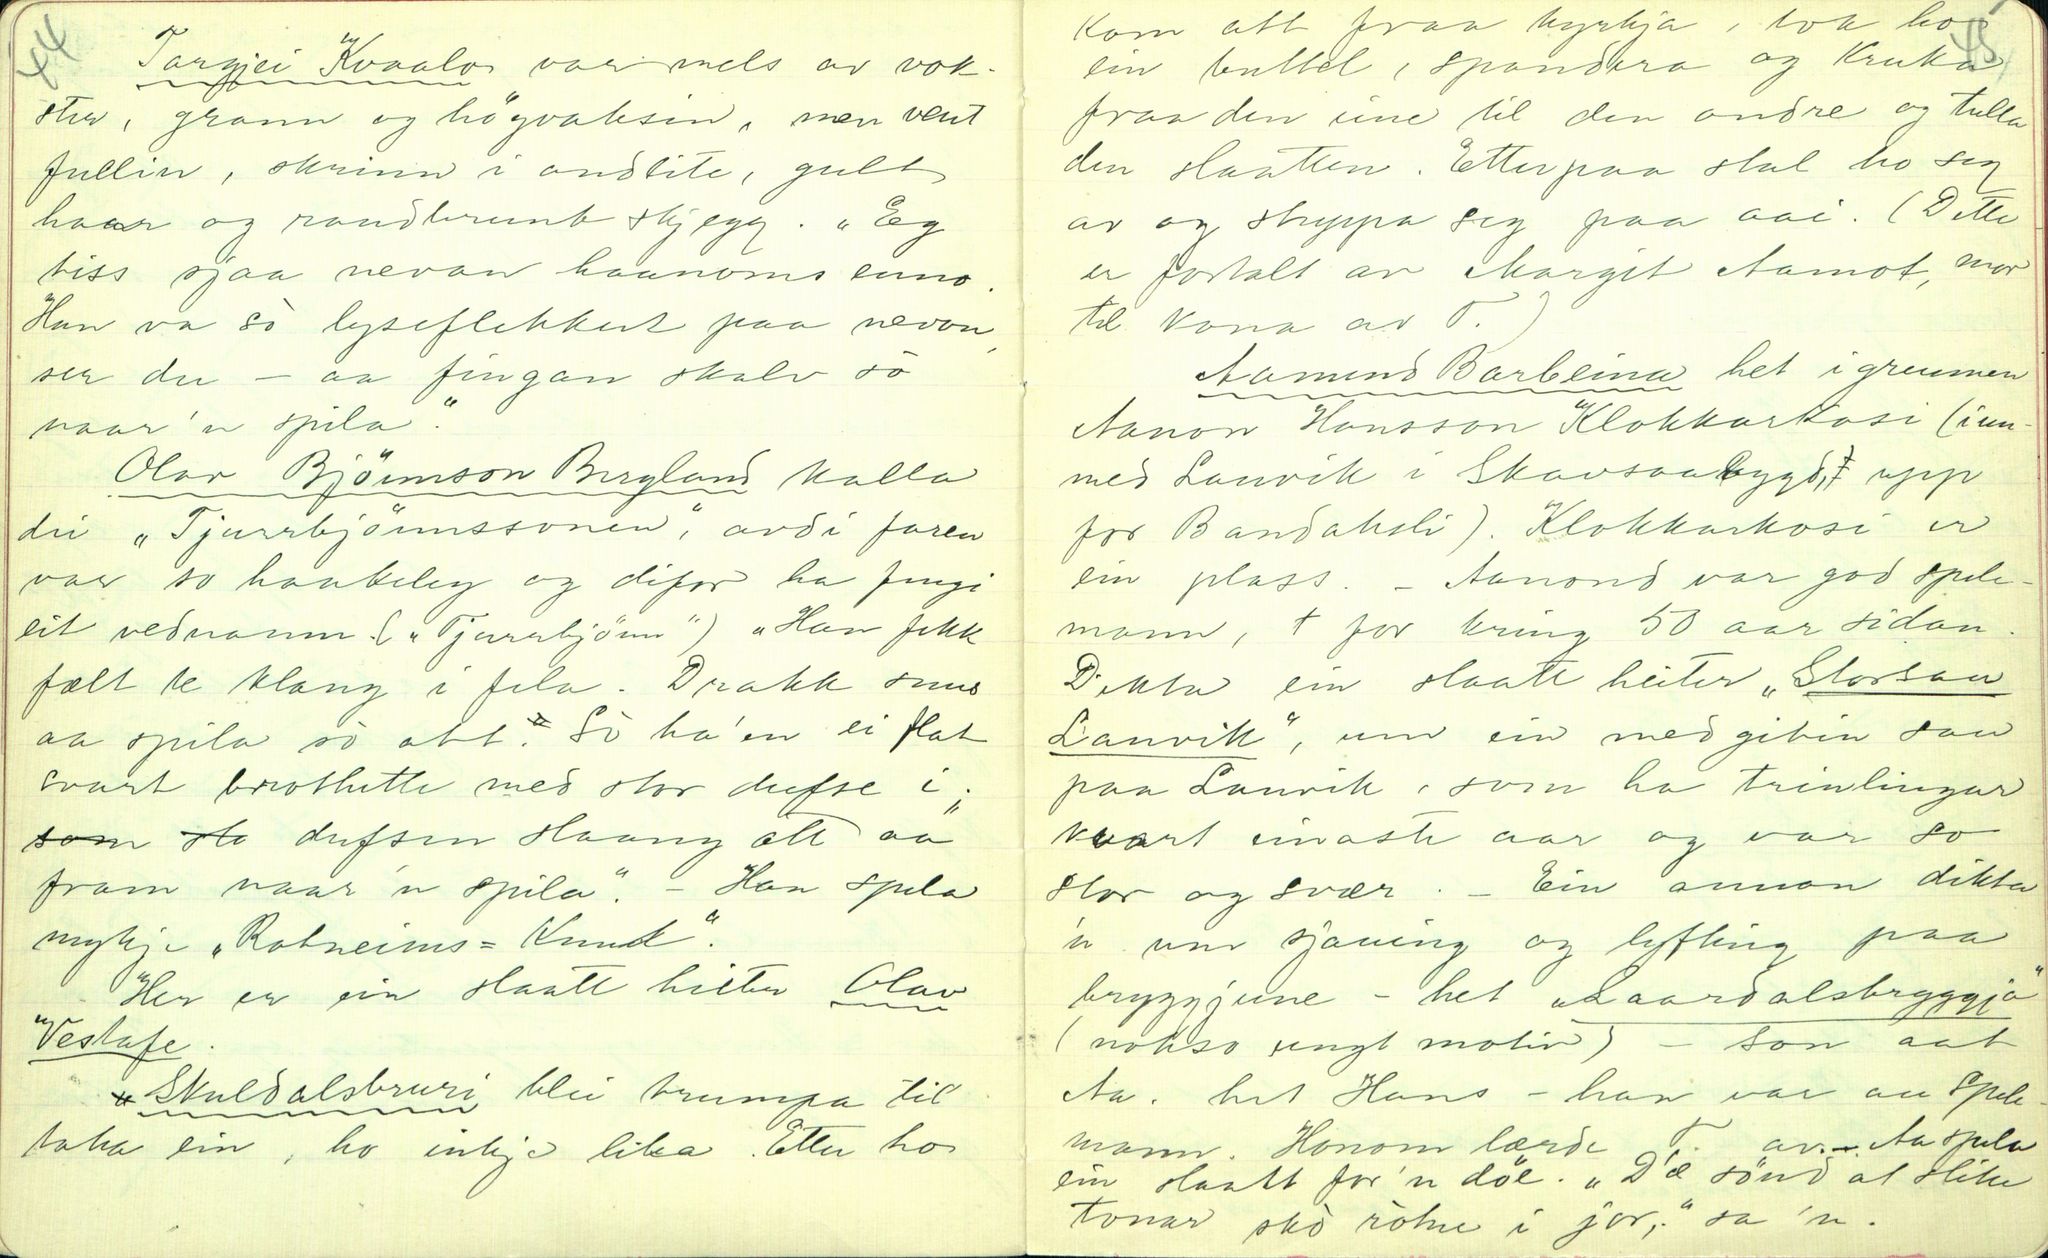 44
Targjei Kvaale var mels av vok-
ster, grann og högvaksin, men vent
fullin, skrinn i andlite, gult
haar og raudbrunt skjegg. "Eg
tiss sjaa nevan haanoms enno.
Han va sò lyseflekkert paa nevan,
ser du – aa fingan skalv sò
naar 'n spila".
Olav Björnson Bergland kalla
dei "Tjurrbjönnssonen", avdi faren
var so haakeleg og difor ha fengi
eit vednamn ("Tjurrbjönn") "Han fekk
fælt te klang i fela. Drakk snus
aa spila sò att. Sò ha'en ei flat
svart brothette med stor dufse i;
dufsen slaang att aa
fram naar 'n spila". – Han spela
mykje "Rotneims=Knut".
Her er ein slaatt heiter Olav
Vestafe.
Skuldalsbruri blei trumpa til
taka ein, ho inkje lika. Etter ho
45
kom att fraa kyrkja, tok ho
ein buttel, spandera og kruka
fraa den eine til den andre og tulla
den slaatten. Etterpaa stal ho seg
av og stuppa seg paa aai. (Dette
er fortalt av Margit Aamot, mor
til kona av T.)
Aamund Barbeina het i greunnen
Aanon Hansson Klokkarkosi (inn-
med Lauvik i Skavsaabygd, upp
for Bandaksli). Klokkarkosi er
ein plass. – Aanond var god spele-
mann, † for kring 50 aar sidan.
Dikta ein slaatt heiter "Storsau
Lauvik", um ein medgiven sau
paa Lauvik, som ha trinlingar
kvart einaste aar og var so
stor og svær. – Ein annan dikta
'n um sjauing og lyfting paa
bryggjune – het "Laardalsbryggja"
(nokso ungt motiv) – Son aat
Aa. het Hans – han var au spele-
mann. Honom lærde T. av. – Aa spela
ein slaatt för 'n döe. "D'æ sönd at slike
tonar skò ròtne i jor," sa 'n.